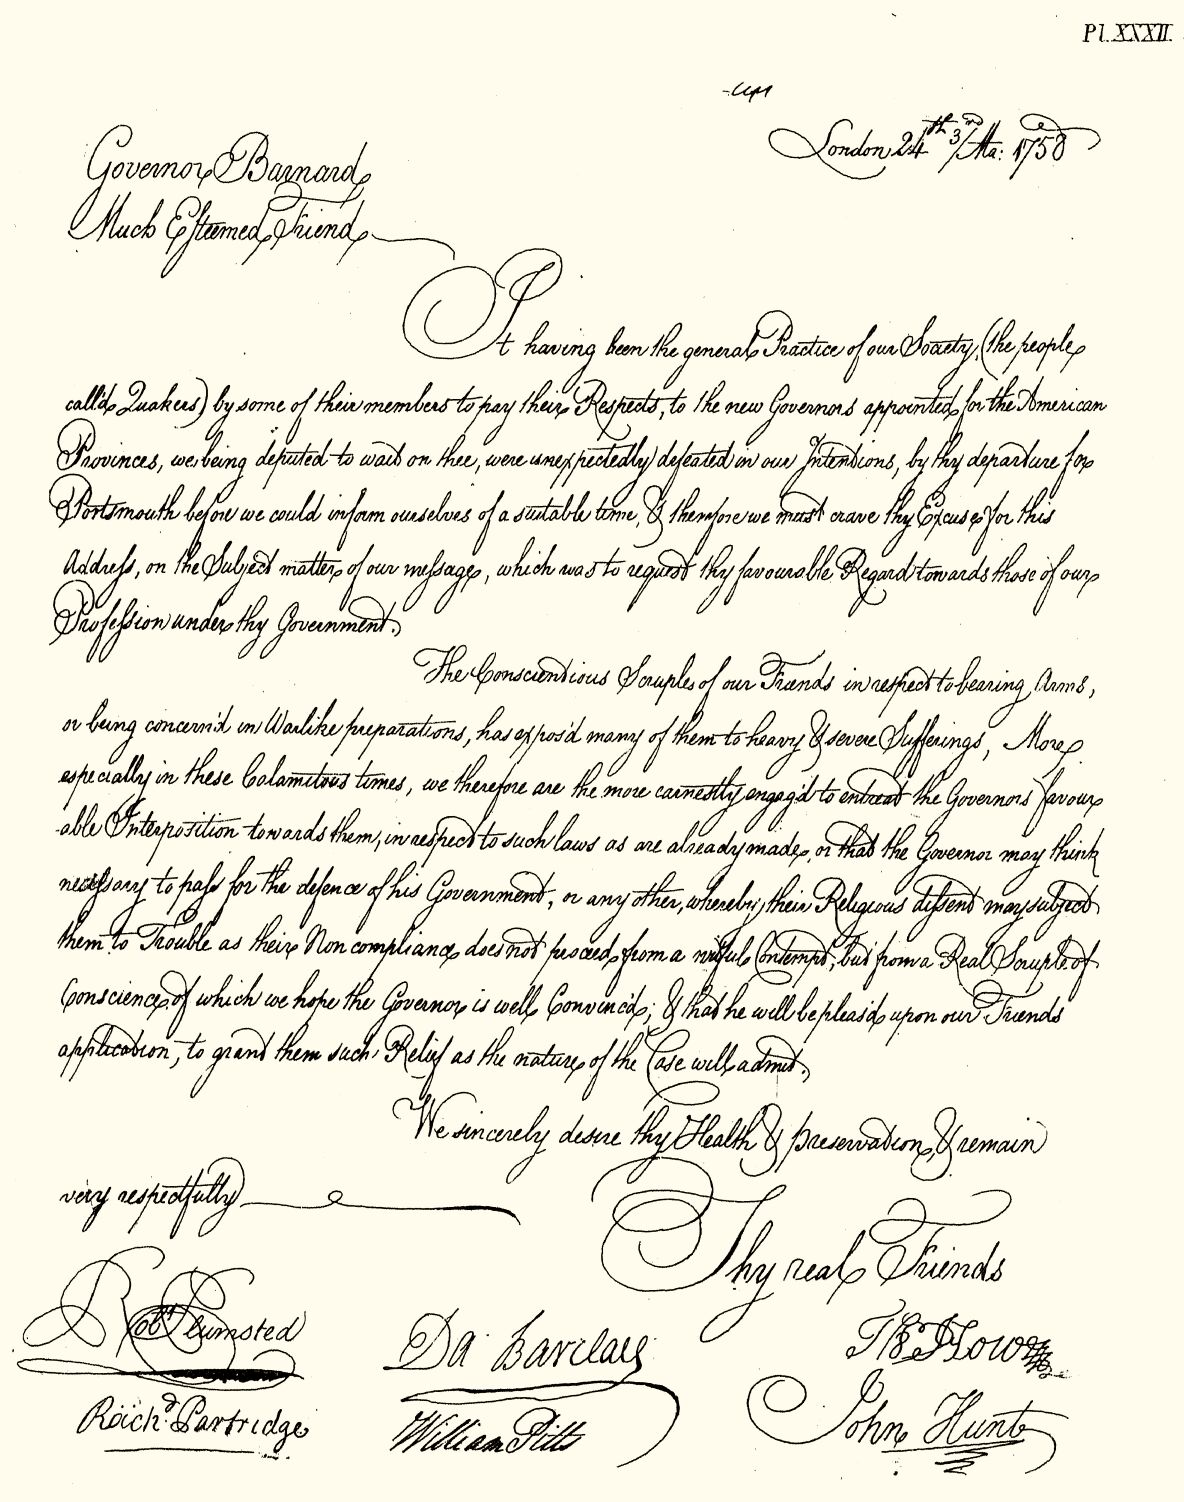 Pl. XXXII.
London 24th 3/mo: 1758
Governor Barnard
Much Esteemed Friend
It having been the general Practice of our Society, (the people
call'd Quakers) by some of their members to pay their Respects, to the new Governors appointed for the American
Provinces, we being deputed to wait on thee, were unexpectedly defeated in our Intentions, by thy departure for
Portsmouth before we could inform ourselves of a suitable time, & therefore we must crave thy Excuse for this
Address, on the Subject matter of our message, which was to request thy favourable Regard towards those of our
Profession under thy Government.
The Conscientious Scruples of our Friends in respect to bearing Arms,
or being concern'd in Warlike preparations, has expos'd many of them to heavy & severe Sufferings, More
especially in these Calamitous times, we therefore are the more earnestly engag'd to entreat the Governors favour
-able Interposition towards them, in respect to such laws as are already made, or that the Governor may think
necessary to pass for the defence of his Government, or any other, whereby their Religious dissent may subject
them to Trouble as their Non compliance does not proceed from a wilful Contempt, but from a Real Scruple of
Conscience, of which we hope the Governor is well Convinc'd; & that he will be pleas'd upon our Friends
application, to grant them such Relief as the nature of the Case will admit.
We sincerely desire thy Health & preservation, & remain
very respectfully
Thy real Friends
Robt Plumsted
Da Barclay
Tho How
Rich'd Partridge
William Pitts
John Hunt